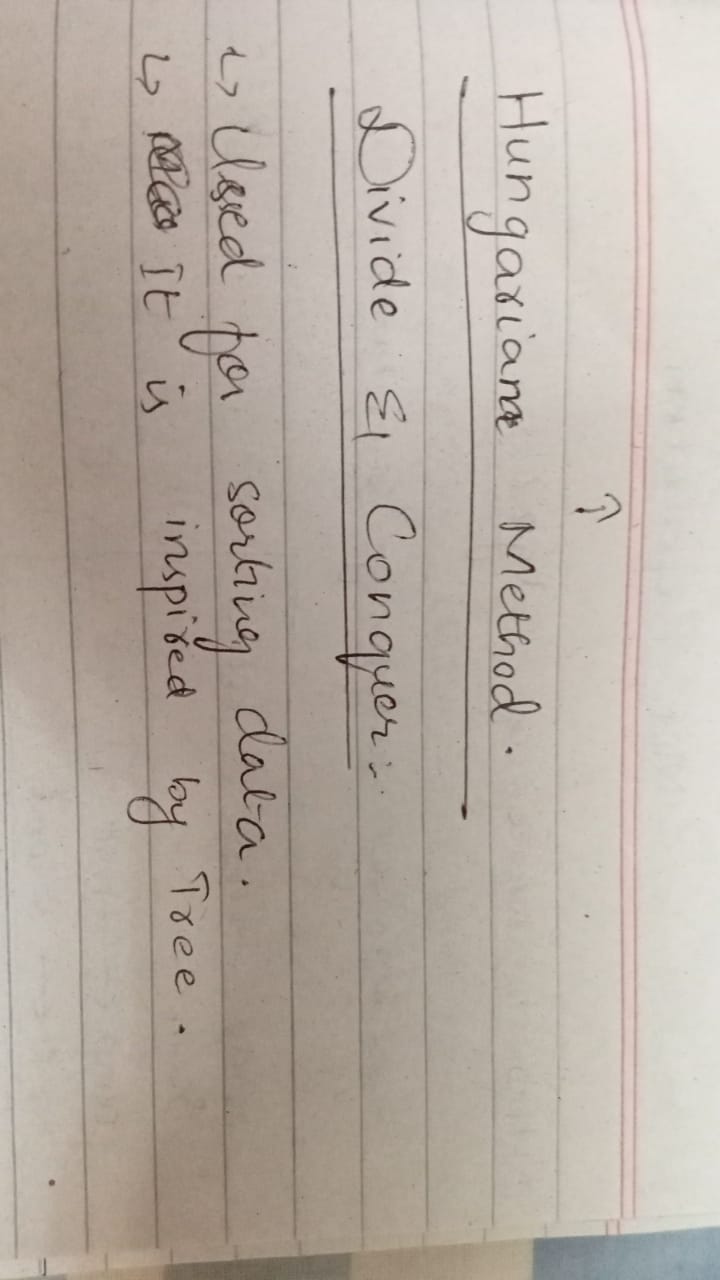 ↑
Hungarian Method.
Divide & Conquer:-
↳ Used for sorting data.
↳ It is inspired by Tree.